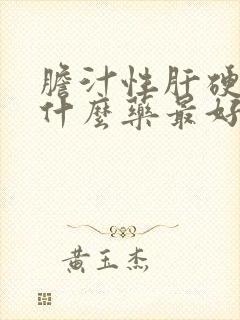 膽汁性肝硬
什麼藥最好
黃玉杰